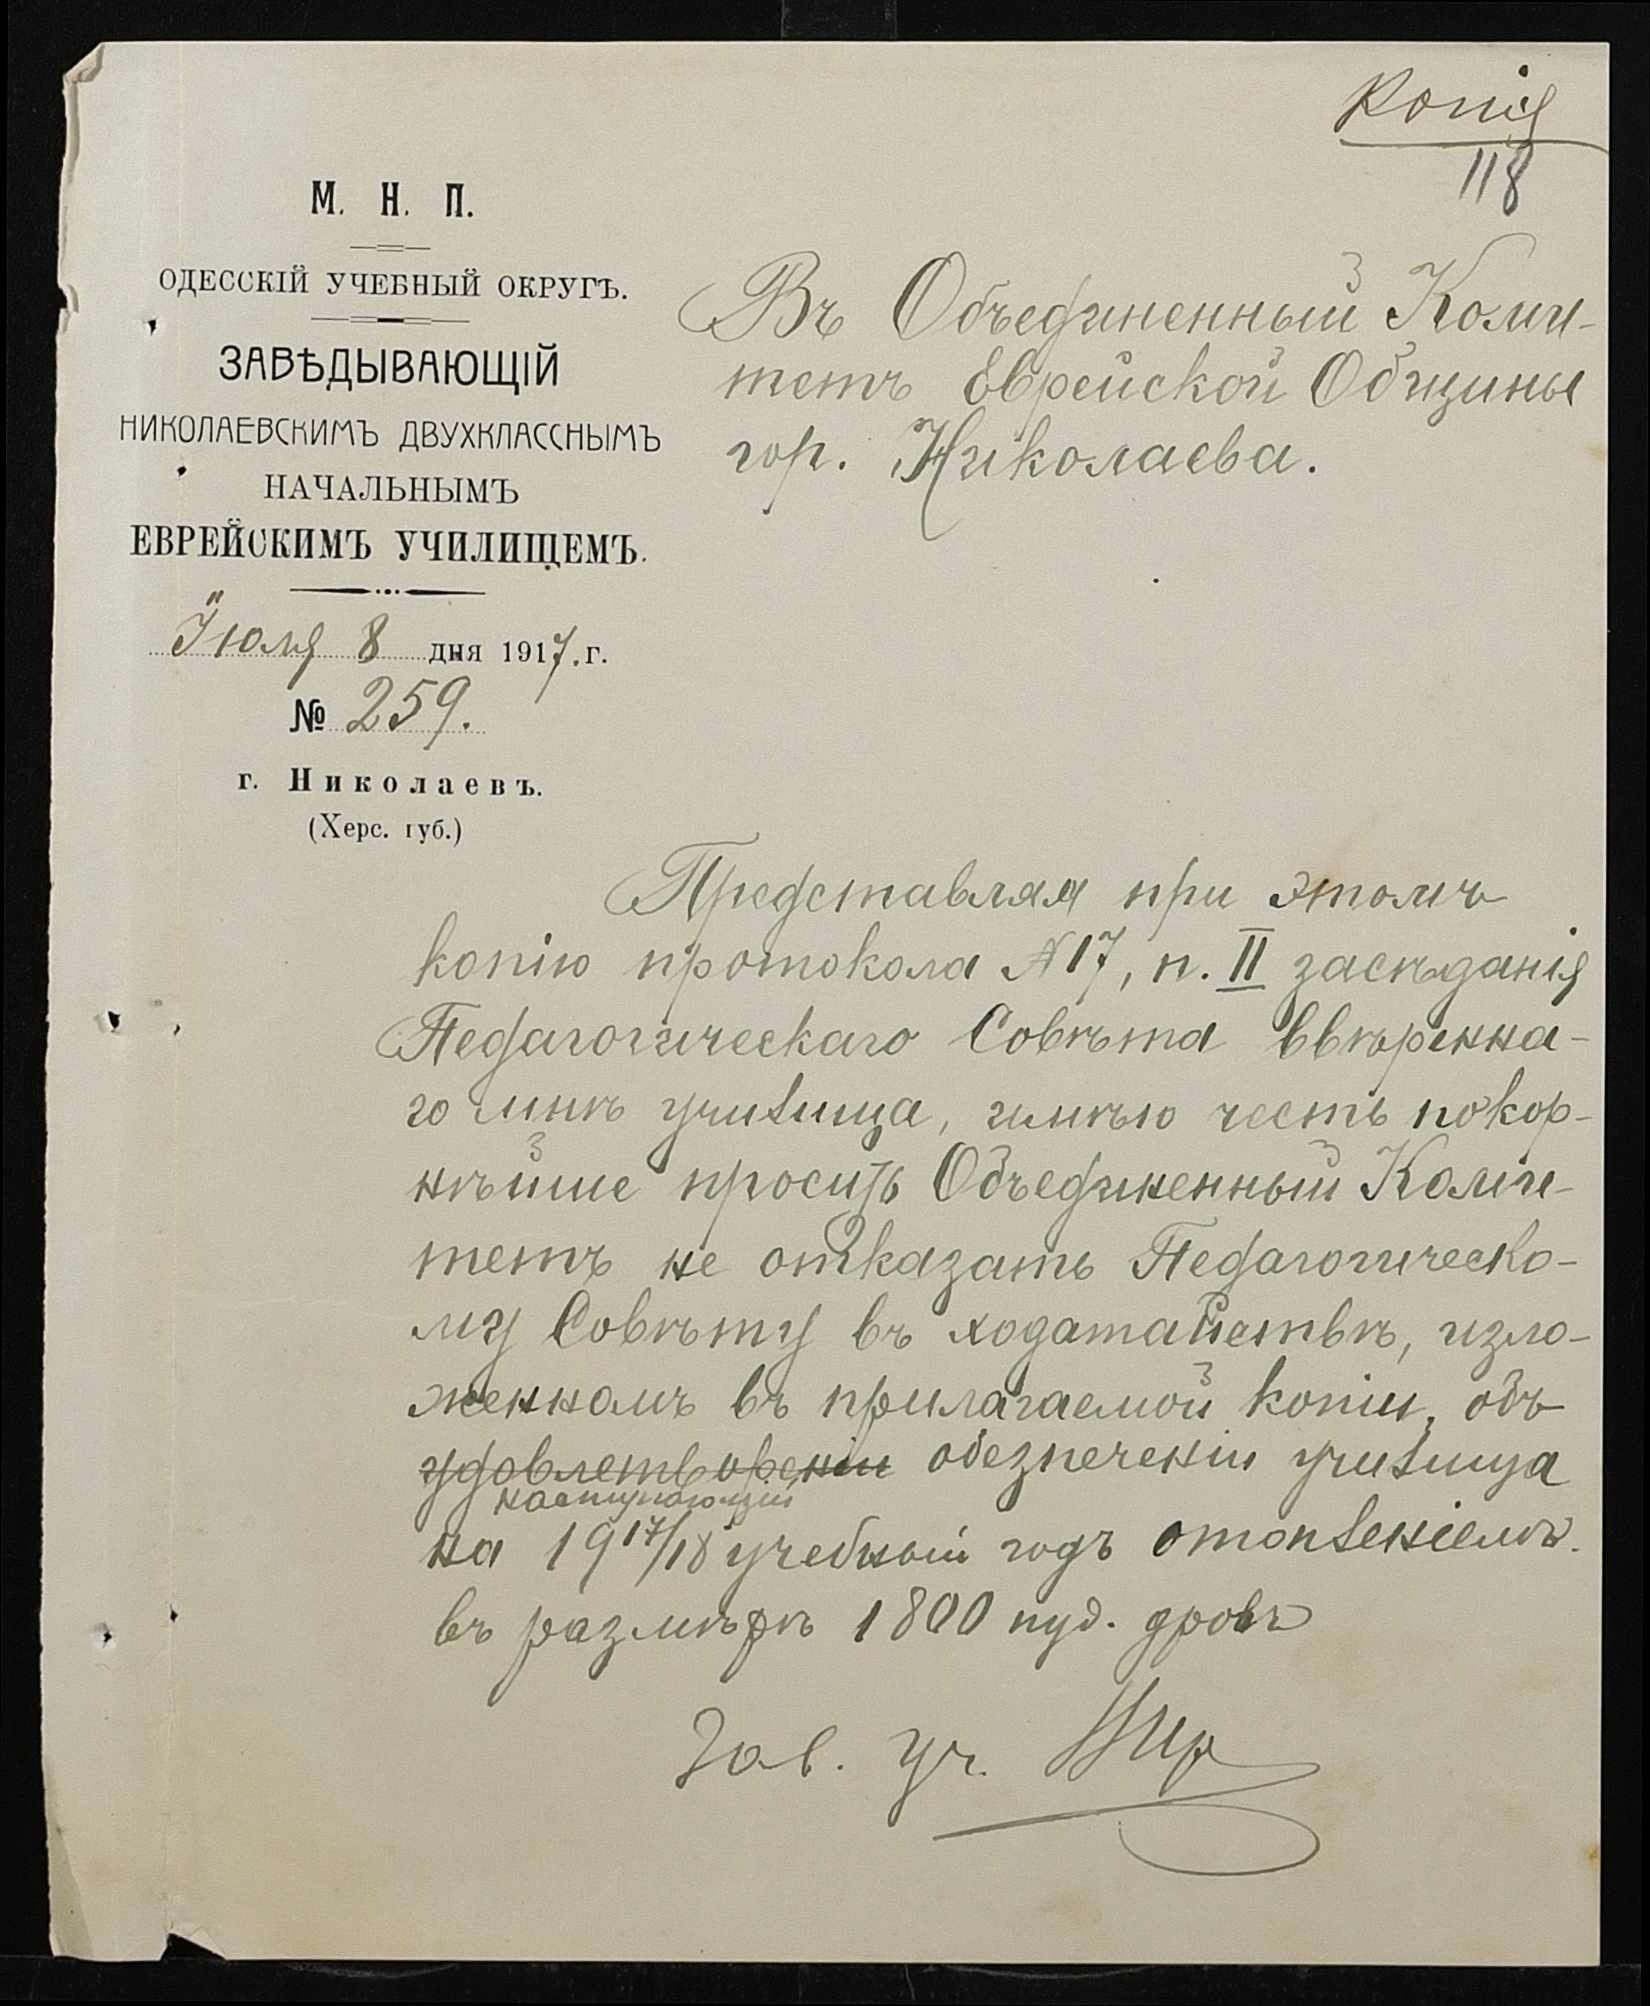 Копія
118
М. Н. П.
ОДЕССКІЙ УЧЕБНЫЙ ОКРУГЪ.
ЗАВѢДЫВАЮЩІЙ
НИКОЛАЕВСКИМЪ ДВУХКЛАССНЫМЪ
НАЧАЛЬНЫМЪ
ЕВРЕЙСКИМЪ УЧИЛИЩЕМЪ.
Іюля 8 дня 1917. г.
№ 259.
г. Николаевъ.
(Херс. губ.)
Въ Объединенный Коми-
тетъ Еврейской Общины
гор. Николаева.
Представляя при этомъ
копію протокола №17, п. II засѣданія
Педагогическаго Совѣта ввѣренна-
го мнѣ училища, имѣю честь покор-
нѣйше просить Объединенный Коми-
тетъ не отказать Педагогическо-
му Совѣту въ ходатайствѣ, изло-
женномъ въ прилагаемой копіи, объ
удовлетвореніи обезпеченіи училища
наступающій
на 1917/18 учебный годъ отопленіемъ.
въ размѣрѣ 1800 пуд. дровъ
Зав. уч.